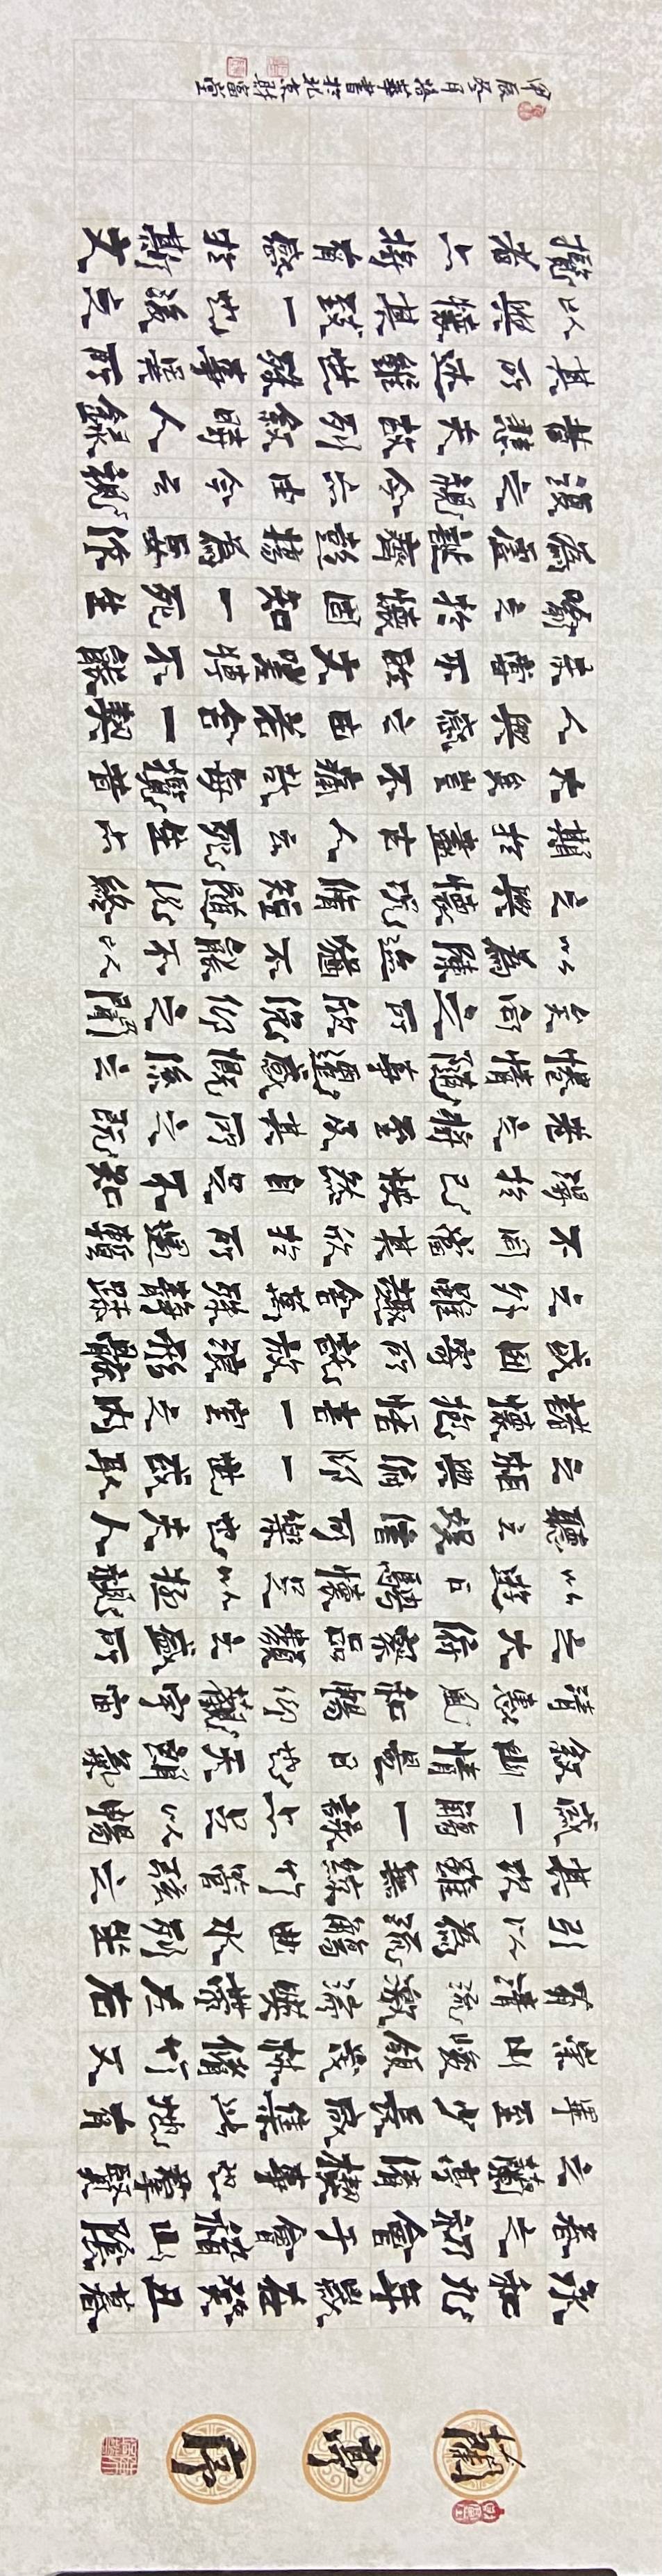 蘭亭序
永和九年歲在癸丑暮
春之初會于會稽山陰
之蘭亭脩禊事也羣賢
畢至少長咸集此地有
崇山峻領茂林脩竹又
有清流激湍映帶左右
引以為流觴曲水列坐
其次雖無絲竹管弦之
盛一觴一詠亦足以暢
敘幽情是日也天朗氣
清惠風和暢仰觀宇宙
之大俯察品類之盛所
以遊目騁懷足以極視
聽之娛信可樂也夫人
之相與俯仰一世或取
諸懷抱悟言一室之內
或因寄所託放浪形骸
之外雖趣舍萬殊靜躁
不同當其欣於所遇暫
得於己快然自足不知
老之將至及其所之既
惓情隨事遷感慨係之
矣向之所欣俛仰之間
以為陳迹猶不能不以
之興懷況脩短隨化終
期於盡古人云死生亦
大矣豈不痛哉每攬昔
人興感之由若合一契
未嘗不臨文嗟悼不能
喻之於懷固知一死生
為虛誕齊彭殤為妄作
後之視今亦由今之視
昔悲夫故列敘時人錄
其所述雖世殊事異所
以興懷其致一也後之
攬者亦將有感於斯文
甲辰月華書於北京財富堂